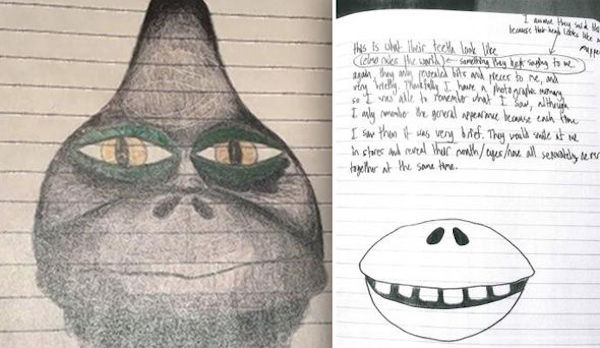 I assume they said this
because their head looks like a
muppet
this is what their teeth look like
(elmo rules the world) ← something they kept saying to me.
again, they only revealed bits and pieces to me, and
very briefly. Thankfully I have a photographic memory
so I was able to remember what I saw, although
I only remember the general appearance because each time
I saw them it was very brief. They would smile at me
in stores and reveal their mouth/eyes/nose all separately, never
together at the same time.